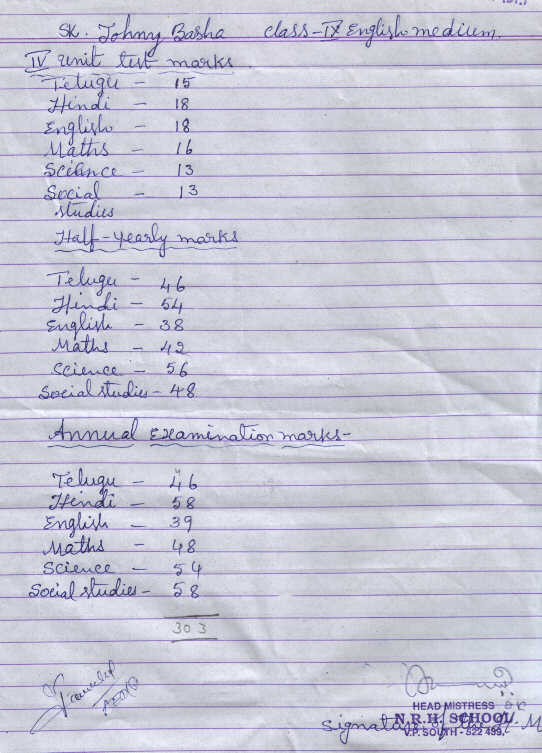 SK. Johny Basha class-IX English medium.
IV unit test marks
Telugu - 15
Hindi - 18
English - 18
Maths - 16
Sciance - 13
Social - 13
studies
Half-yearly marks
Telugu - 46
Hindi - 54
English - 38
Maths - 42
Science - 56
Social studies - 48
Annual Examination marks-
Telugu - 46
Hindi - 58
English - 39
Maths - 48
Science - 54
Social studies - 58
303
HEAD MISTRESS
N.R.H. SCHOOL
Signature of the H.M
V.P. SOUTH - 522 499.